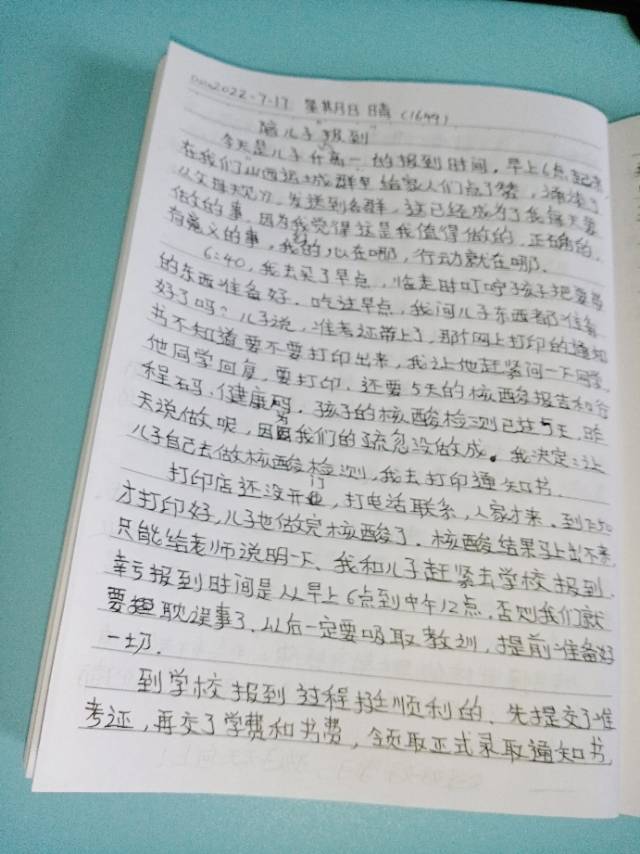 Date 2022-7-17 星期日 晴 (1649)
陪儿子"报到"
今天是儿子升高一的报到时间，早上6点起来，
在我们山西运城群里给家人们点了赞，诵读了
父母规，发送到各群，这已经成为了我每天要
做的事，因为我觉得这是我值得做的，正确的，
有意义的事，我的心在哪，行动就在哪.
6:40，我去买了早点，临走时叮咛孩子把要带
的东西准备好.吃过早点，我问儿子东西都准备
好了吗？儿子说，准考证带上了，那个网上打印的通知
书不知道要不要打印出来，我让他赶紧问一下同学，
他同学回复，要打印.还要5天的核酸报告和行
程码，健康码.孩子的核酸检测已过5天，昨
天说做呢，因为我们的疏忽没做成。我决定：让
儿子自己去做核酸检测，我去打印通知书.
打印店还没开门，打电话联系，人家才来.到7:50
才打印好，儿子也做完核酸了.核酸结果马上出不来，
只能给老师说明一下、我和儿子赶紧去学校报到.
幸亏报到时间是从早上6点到中午12点，否则我们就
要耽误事了、以后一定要吸取教训，提前准备好
一切.
到学校报到过程挺顺利的、先提交了准
考证，再交了学费和书费，领取正式录取通知书，